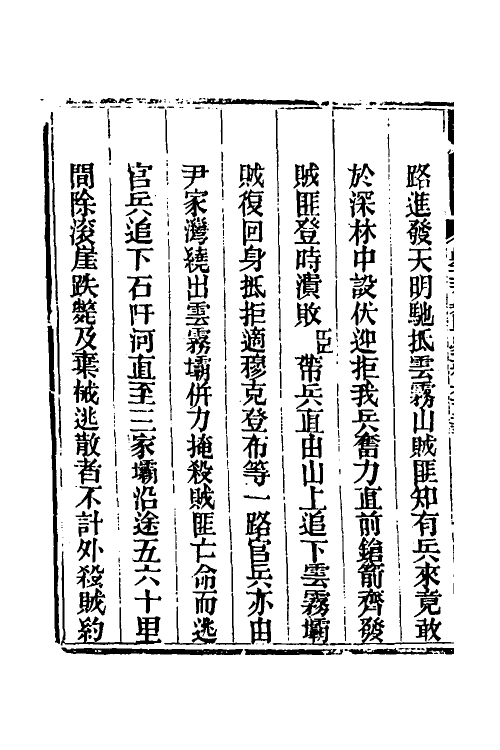 路進發天明馳抵雲霧山賊匪知有兵來竟敢
於深林中設伏迎拒我兵奮力直前鎗箭齊發
賊匪登時潰敗臣帶兵直由山上追下雲霧壩
賊復回身抵拒適穆克登布等一路官兵亦由
尹家灣繞出雲霧壩併力掩殺賊匪亡命而逃
官兵追下石阡河直至三家壩沿途五六十里
間除滾崖跌斃及棄械逃散者不計外殺賊約